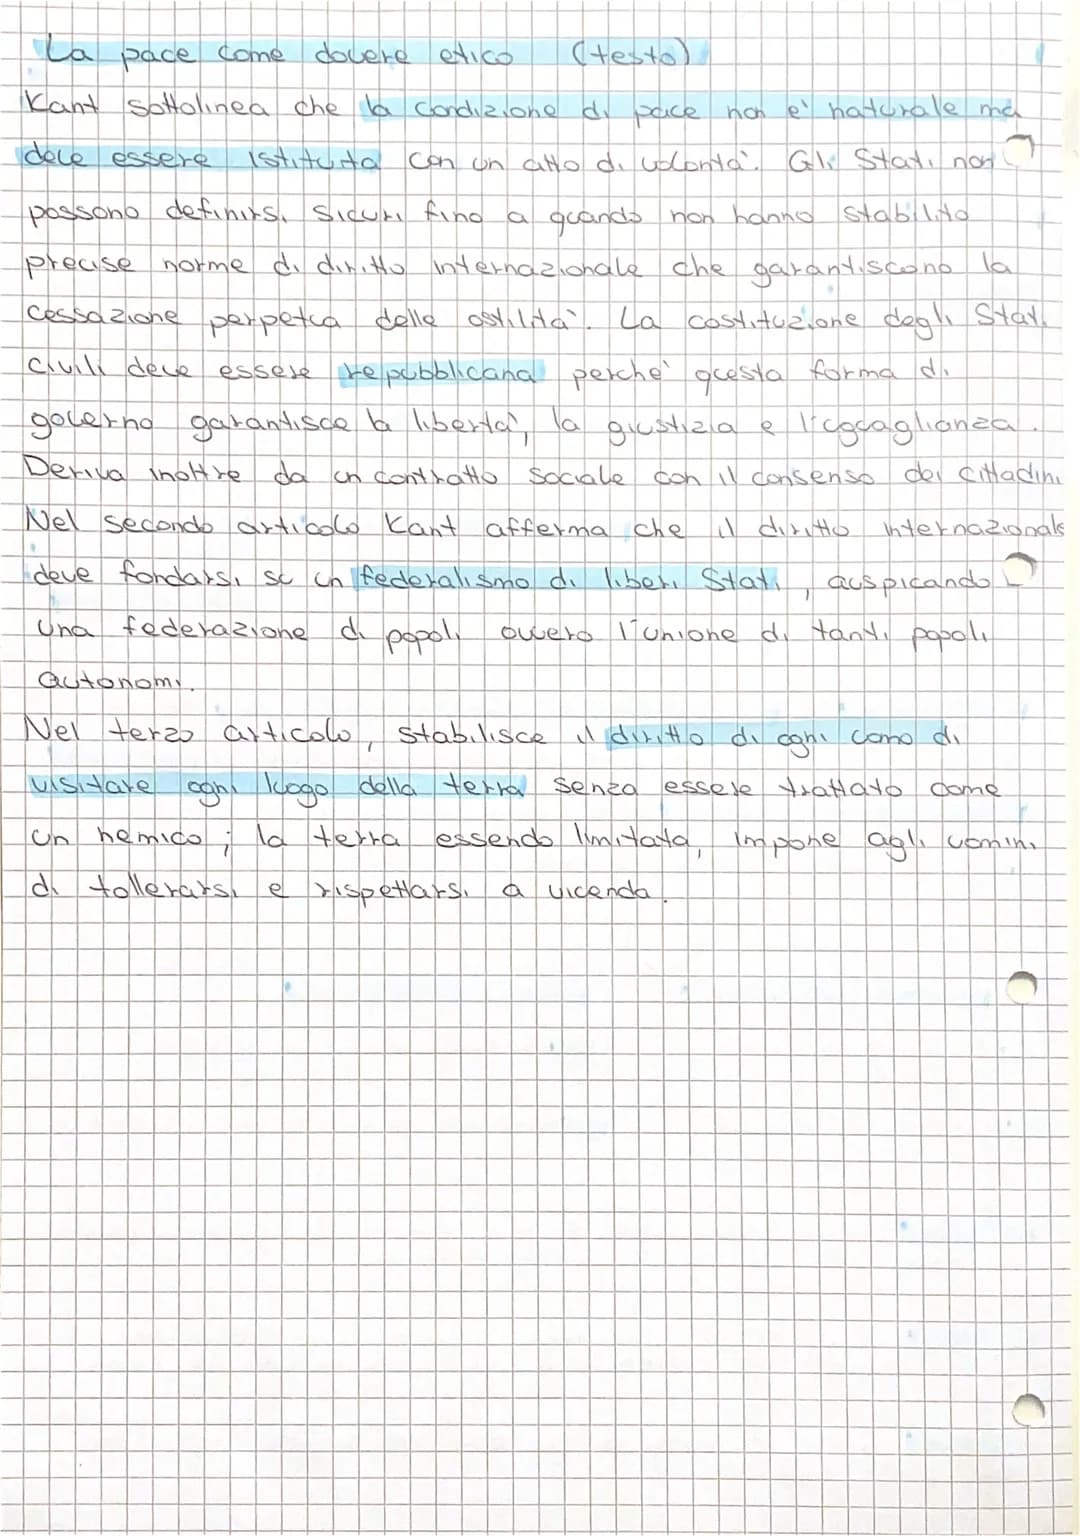 La pace come dovere etico (testo)
Kant sottolinea che la condizione di pace non e' naturale ma
deve essere istituita con un atto di volontà. Gli Stati non
possono definirsi sicuri fino a quando non hanno stabilito
precise norme di diritto internazionale che garantiscono la
cessazione perpetua delle ostilità. La costituzione degli Stati
civili deve essere repubblicana perche' questa forma di
governo garantisce la libertà, la giustizia e l'uguaglianza.
Deriva inoltre da un contratto sociale con il consenso dei cittadini
Nel secondo articolo Kant afferma che il diritto internazionale
deve fondarsi su un federalismo di liberi Stati, auspicando
una federazione di popoli ovvero l'unione di tanti popoli
autonomi.
Nel terzo articolo, stabilisce il diritto di ogni uomo di
visitare ogni luogo della terra senza essere trattato come
un nemico; la terra essendo limitata, impone agli uomini
di tollerarsi e rispettarsi a vicenda.